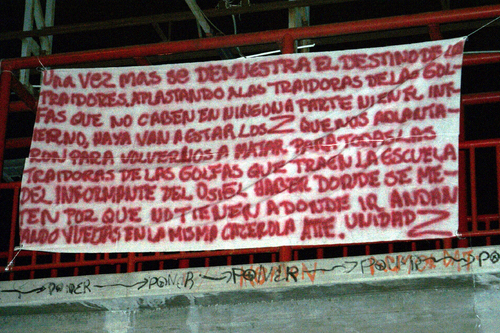 UNA VEZ MAS SE DEMUESTRA EL DESTINO DE LOS
TRAIDORES, APLASTANDO A LAS TRAIDORAS DE LAS GOL-
FAS QUE NO CABEN EN NINGONA PARTE NI EN EL INF-
IERNO, HAYA VAN A ESTAR LOS Z QUE NOS ADLANTA-
RON PARA VOLVERNOS A MATAR PARA TODAS LAS
TRAIDORAS DE LAS GOLFAS QUE TRAEN LA ESCUELA
DEL INFORMANTE DEL OSIEL HABER DONDE SE ME-
TEN POR QUE NO TIENEN A DONDE IR ANDAN
DANDO VUELTAS EN LA MISMA CAZEROLA ATTE. UNIDAD Z
PONER PONER POWER